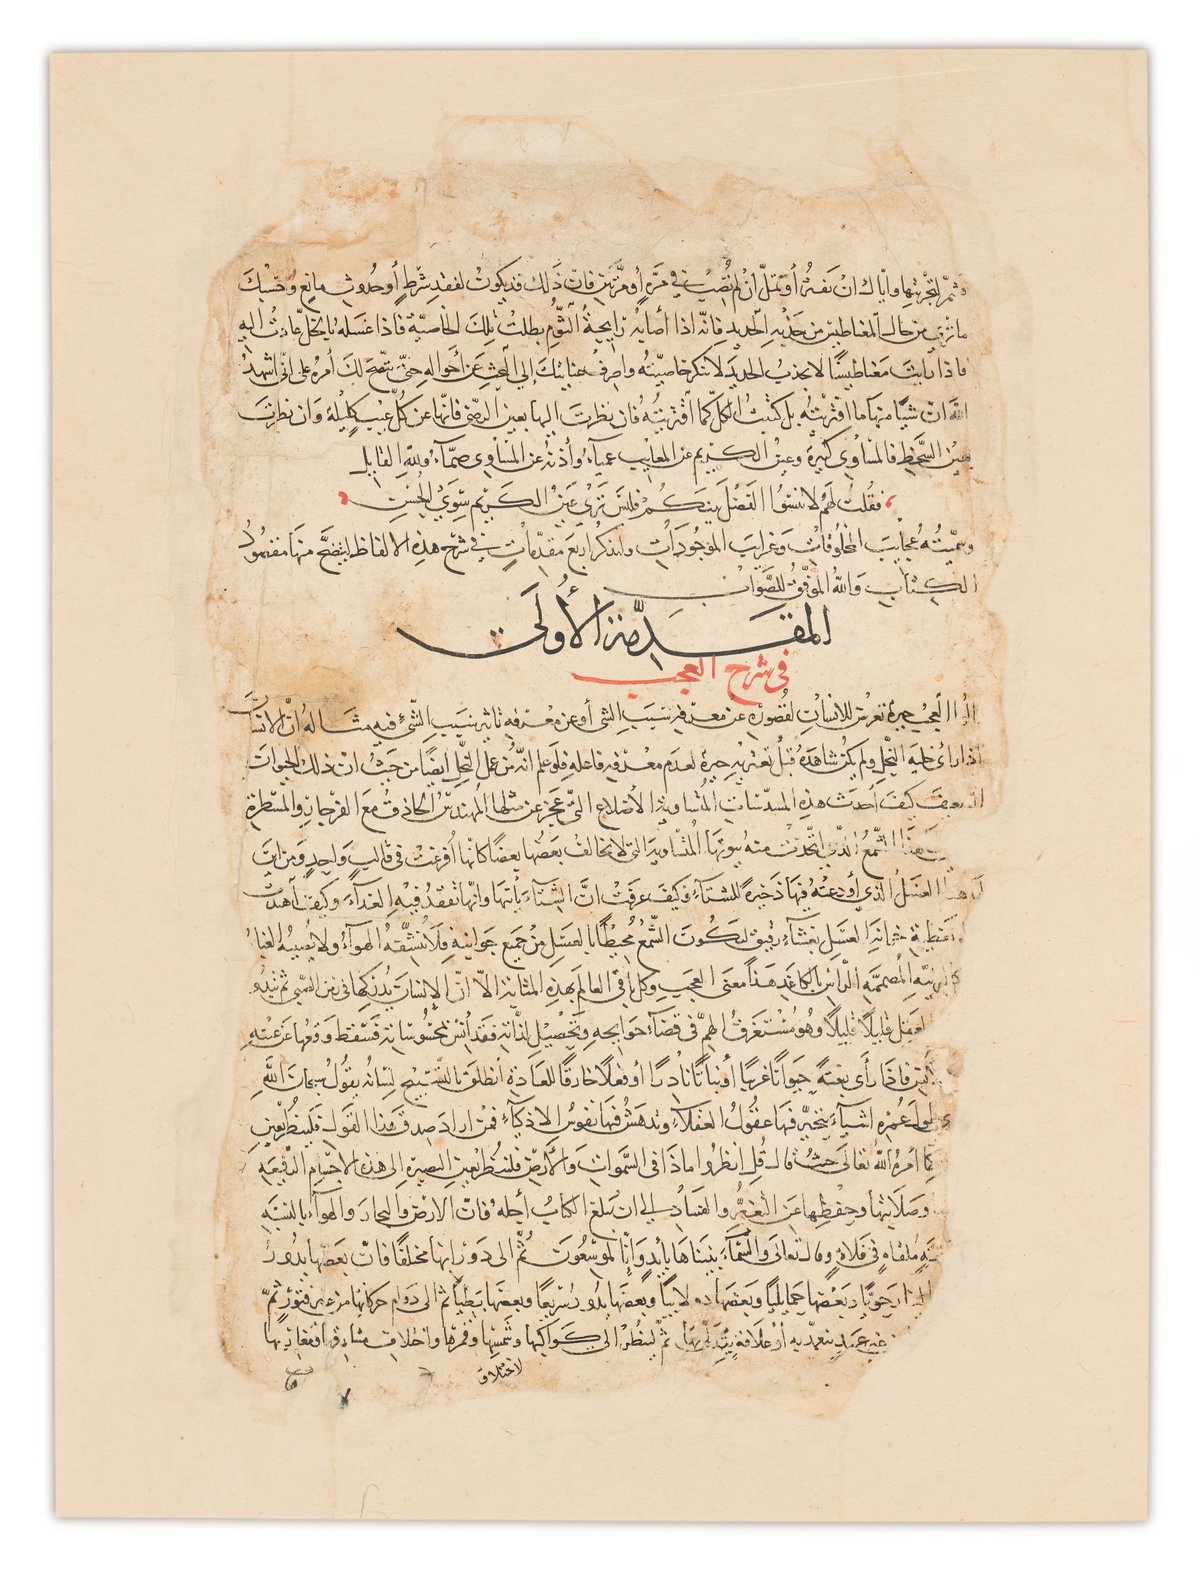 فشمر لتجربتها واياك ان تفتر أو تمل أن لم تُصِب في مرّة أو مرّتين فان ذلك قد يكون لفقد شرط أو حدوث مانع وحسبك
ما ترى من حال المغناطيس من جذب الحديد فانّه اذا أصابه رايحة الثوم بطلت تلك الخاصيّة فاذا غسله بالخل عادت اليه
فاذا رايت مغناطيسًا لا يجذب الحديد لا تنكر خاصيّته واصرف عنايتك إلى البحث عن أحواله حتى يتضح لك أمره على انّى اشهد
الله انّ شيًا منها ما افتريته بل كتبت الكل كما اقتريته فان نظرت اليها بعين الرضى فانّها عن كل عيب كليلة وان نظرت
بعين السخط فالمساوى كثيرة وعين الكريم عن المعايب عمياء وأذنه عن المساوى صمّاء ولله القايل
فقلت لهم لا تنسوا الفضل بينكم فليس ترى عين الكريم سوى الحسن
وسميته عجايب المخلوقات وغرايب الموجودات ولنذكر اربع مقدمات في شرح هذه الالفاظ ليتضح منها مقصود
الكتاب والله الموفق للصواب
المقدمة الأولى
في شرح العجب
العجب حيرة تعرض للانسان لقصوره عن معرفة سبب الشى أو عن معرفة تاثير سبب الشئ فيه مثاله أنّ الانسان
اذا رأى خلية النحل ولم يكن شاهده قبل تعتريه حيرة لعدم معرفة فاعله فلو علم انّه من عمل النحل ايضًا من حيث ان ذلك الحيوان
كيف أحدث هذه المسدّسات المتساوية الأضلاع التى عجز عن مثلها المهندس الحاذق مع الفرجار والمسطرة
هذا الشّمع الذى اتّخذت منه بيوتها المتساوية التى لا يخالف بعضها بعضًا كانها أُفرغت فى قالب واحد ومن اين
هذا العسل الذى أودعته فيها ذخيرة للشتاء وكيف عرفت انّ الشتاء يأتيها وانّها تفقد فيه الغذاء وكيف اهتدت
تغطية خزانة العسل بغشاء رقيق ليكون الشّمع محيطًا بالعسل من جميع جوانبه فلا تنشّفه الهواء ولا يصيبه الغبار
المصممة الرأس بالكاغد هذا معنى العجب وكل ما فى العالم بهذه المثابة الاّ انّ الإنسان يدركها فى زمن الصّبى ثم تبدو
العقل قليلًا قليلًا وهو مستغرق الهمّ فى قضاء حوايجه وتحصيل لذاته فقد أنس بمحسوساته فسقط وقعها عن عينه
فاذا رأى بغتةً حيوانًا غريبًا أو نباتًا نادرًا أو فعلًا خارقًا للعادة أنطلق بالتّسبيح لسانه يقول سبحان الله
طول عمره اشياء يتحيّر فيها عقول العقلاء وتدهش فيها نفوس الاذكياء فمن اراد صدق هذا القول فلينظر بعين
كما أمره الله تعالى حيث قال قل انظروا ماذا فى السموات والأرض فلينظر بعين البصيرة إلى هذه الاجسام الرفيعة
وصلابتها وحفظها عن التغيّر والفساد إلى ان يبلغ الكتاب أجله فان الارض والبحار والهواء بالنسبة
ملقاة فى فلاة وقال تعالى والسماء بنيناها بأيد وإنّا لموسعون ثم الى دورانها مختلفًا فان بعضها يدور
رحويًا وبعضها حمايليًا وبعضها دولابيًا وبعضها يدور سريعًا وبعضها بطيئًا ثم الى دوام حركاتها من غير فتور ثمّ
غير عمد يتعمد به أو علاقة يتدلّى بها ثم لينظر الى كواكبها وشمسها وقمرها واختلاف مشارقها ومغاربها
لاختلاف